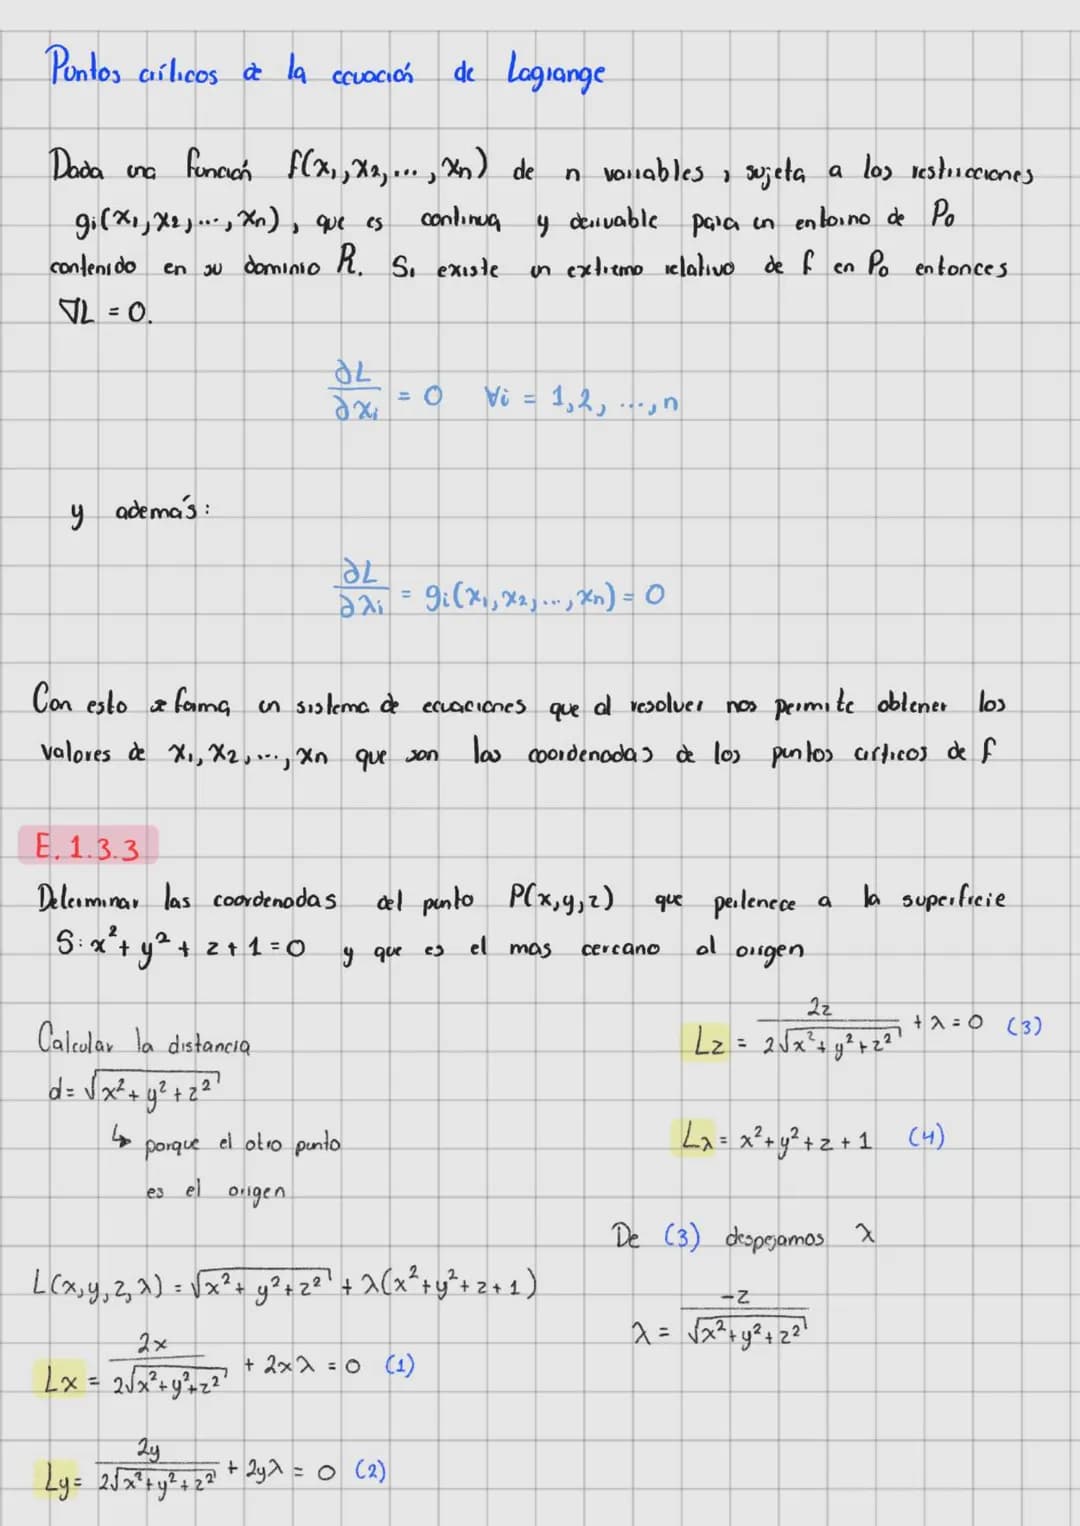 Puntos críticos de la ecuación de Lagrange
Dada una función f(x₁, x₂, ..., xn) de n variables, sujeta a las restricciones
gi(x₁, x₂, ..., xn), que es continua y derivable para un entorno de Po
contenido en su dominio R. Si existe un extremo relativo de f en Po entonces
∇L = 0.
∂L/∂xi = 0 ∀i = 1,2, ...,n
y además:
∂L/∂λi = gi(x₁, x₂, ..., xn) = 0
Con esto se forma un sistema de ecuaciones que al resolver nos permite obtener los
valores de x₁, x₂, ..., xn que son las coordenadas de los puntos críticos de f
E. 1.3.3
Determinar las coordenadas del punto P(x,y,z) que pertenece a la superficie
S: x² + y² + z + 1 = 0 y que es el mas cercano al origen
Calcular la distancia
d = √(x² + y² + z²)
↳ porque el otro punto
es el origen
L(x,y,z,λ) = √(x² + y² + z²) + λ(x² + y² + z + 1)
Lx = 2x/(2√(x² + y² + z²)) + 2xλ = 0 (1)
Ly = 2y/(2√(x² + y² + z²)) + 2yλ = 0 (2)
Lz = 2z/(2√(x² + y² + z²)) + λ = 0 (3)
Lλ = x² + y² + z + 1 (4)
De (3) despejamos λ
λ = -z/√(x² + y² + z²)